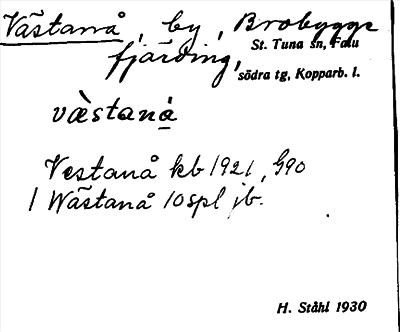 Västanå, by, Brobygge
St. Tuna sn, Falu
fjärding,
södra tg, Kopparb. l.
væ̀staná̱
Vestanå kb 1921, G90
1 Wästanå 10spl jb.
H. Ståhl 1930